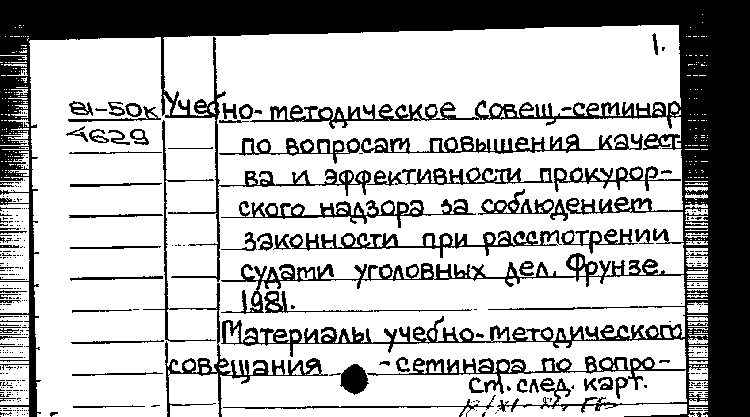 1.
81-50к Учебно-методическое совещ.-семинар
4629 по вопросам повышения качест-
ва и эффективности прокурор-
ского надзора за соблюдением
законности при рассмотрении
судами уголовных дел. Фрунзе.
1981.
Материалы учебно-методического
совещания -семинара по вопро-
См. след. карт.